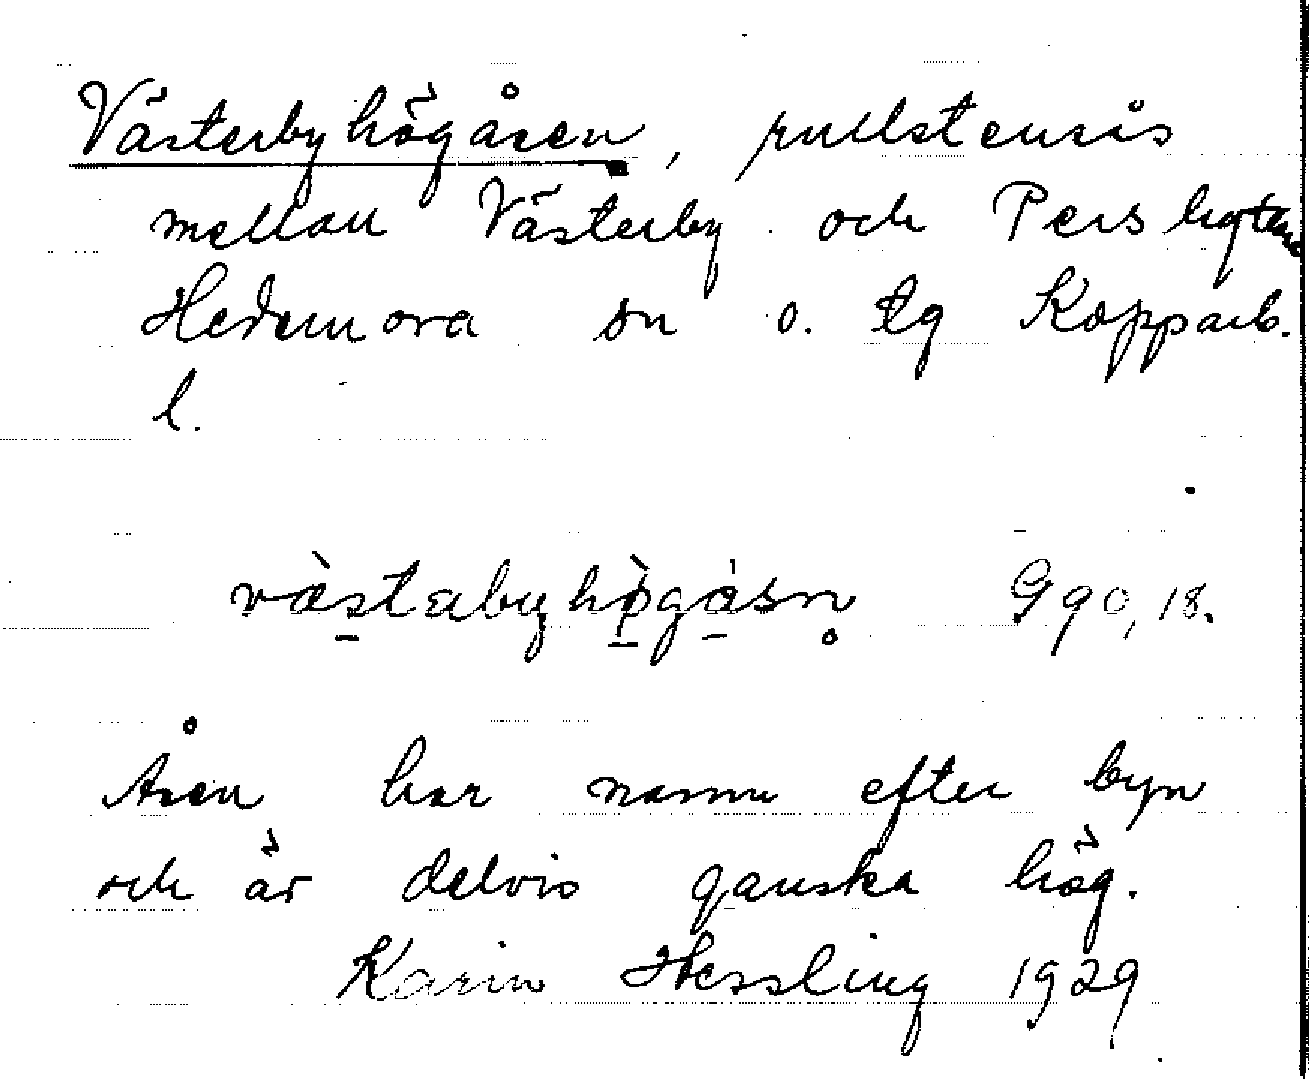 Västerbyhögåsen, rullstensås
mellan Västerby och Pers
Hedemora sn o. tg Kopparb.
l.
västabyhøgåsn G 90, 18.
Åsen har namn efter byn
och är delvis ganska hög.
Karin Hessling 1929